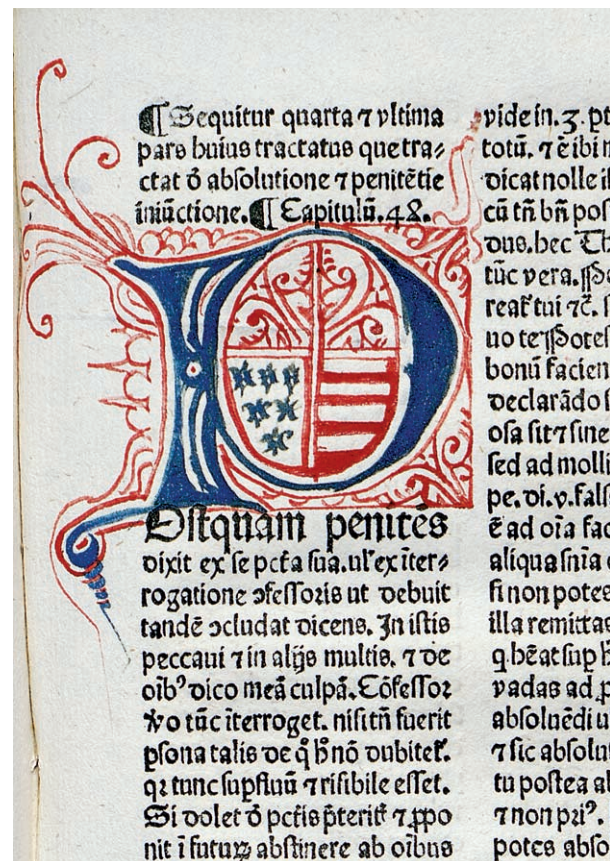 ¶ Sequitur quarta ⁊ vltima
pars huius tractatus que tra⸗
ctat ð absolutione ⁊ penitẽtie
iniũctione. ¶ Capitulũ.48.
POstquam penitẽs
dixit ex se pctã sua. ul' ex ĩter⸗
rogatione ↄfessoris ut debuit
tandẽ ↄcludat dicens. In istis
peccaui ⁊ in alijs multis. ⁊ de
oĩbꝰ dico meã culpã. Cõfessoꝛ
ꝟo tũc ĩterroget. nisi tñ fuerit
ꝑsona talis de q̃ hͦ nõ dubiteꝉ.
qꝛ tunc supfluũ ⁊ risibile esset.
Si dolet ð pctis p̃terit̃ ⁊ ꝓpo
nit ĩ futuꝝ abstinere ab oĩbus
vide in.3. pt
totũ. ⁊ ẽ ibi
dicat nolle
cũ tñ bñ pos
dus. hec Th
tũc vera.
tui ⁊c̃.
uo te
bonũ facien
declarãdo
osa sit ⁊ sine
sed ad molli
pe. di. v. fals
ẽ ad oĩa fac
aliqua sñia
si non potes
illa remittas
q. bẽat sup
vadas ad
absoluẽdi u
⁊ sic absolu
tu postea ab
⁊ non pꝛiꝰ.
potes abso